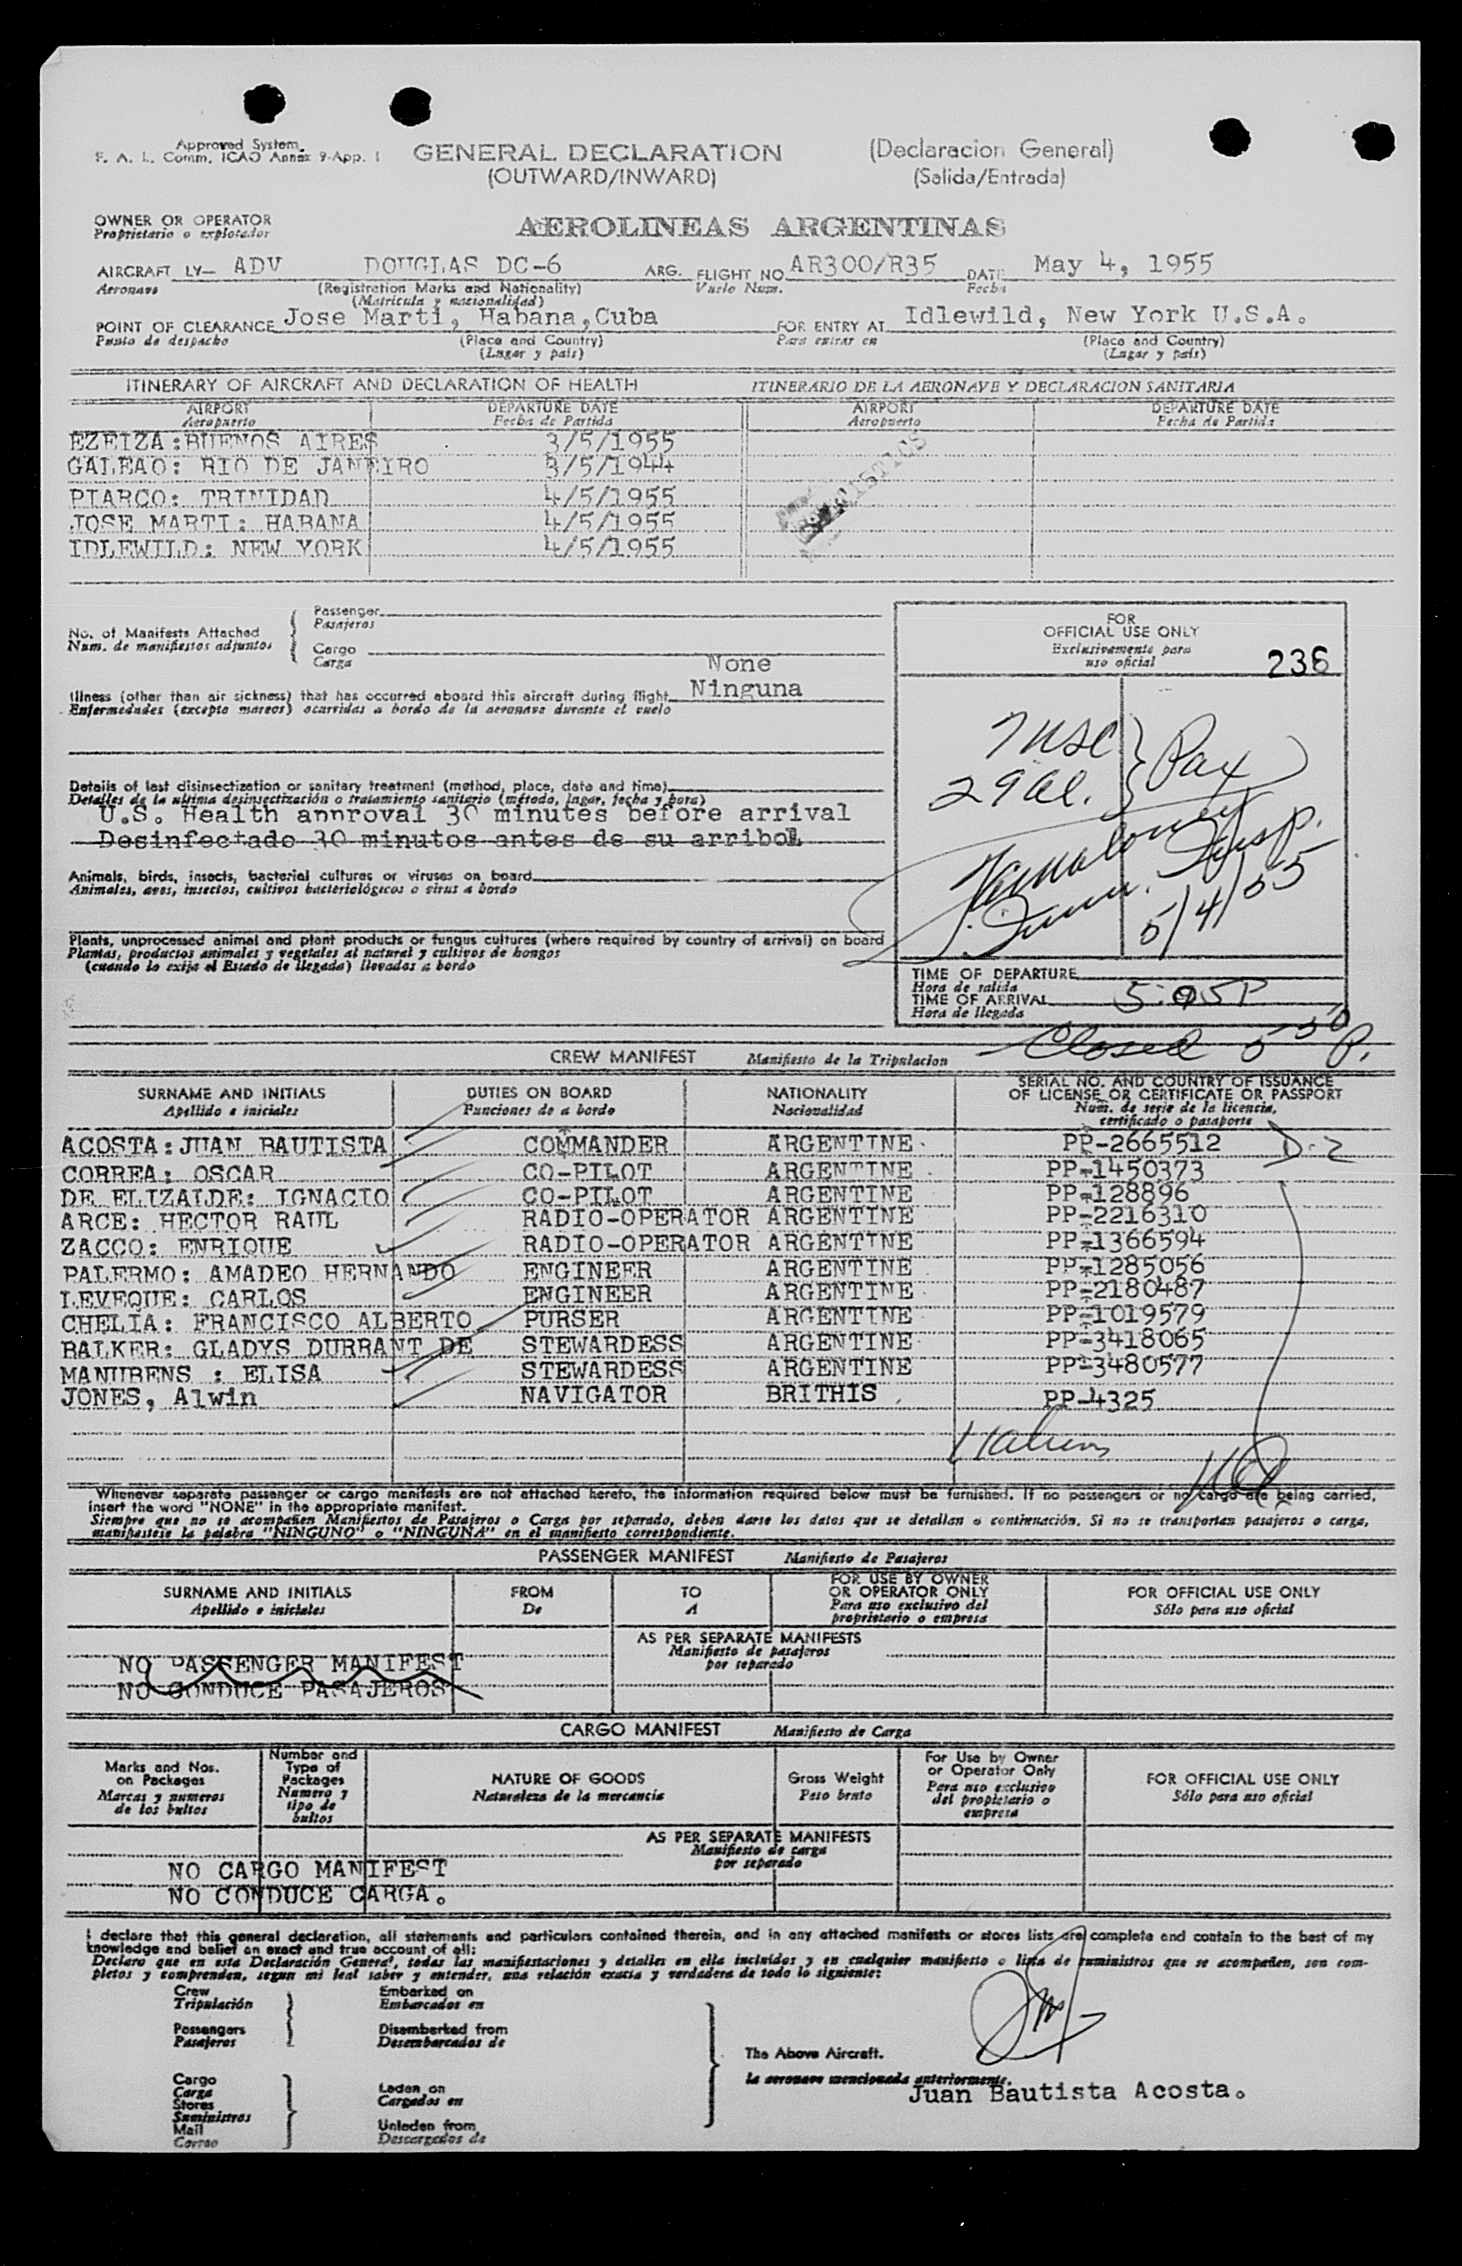 Approved System
F. A. L. Comm. ICAO Annex 9-App. 1
GENERAL DECLARATION
(Declaracion General)
(OUTWARD/INWARD)
(Salida/Entrada)
OWNER OR OPERATOR
Proprietario o explotador
AEROLINEAS ARGENTINAS
AIRCRAFT LY- ADV DOUGLAS DC-6 ARG. FLIGHT NO AR300/R35 DATE May 4, 1955
Aeronave (Registration Marks and Nationality) Vuelo Num. Fecha
(Matricula y nacionalidad)
POINT OF CLEARANCE Jose Marti, Habana, Cuba FOR ENTRY AT Idlewild, New York U.S.A.
Punto de despacho (Place and Country) Para entrar en (Place and Country)
(Lugar y pais) (Lugar y pais)
ITINERARY OF AIRCRAFT AND DECLARATION OF HEALTH ITINERARIO DE LA AERONAVE Y DECLARACION SANITARIA
AIRPORT DEPARTURE DATE AIRPORT DEPARTURE DATE
Aeropuerto Fecha de Partida Aeropuerto Fecha de Partida
EZEIZA:BUENOS AIRES 3/5/1955
GALEAO: RIO DE JANEIRO 3/5/1944
PIARCO: TRINIDAD 4/5/1955
JOSE MARTI: HABANA 4/5/1955
IDLEWILD: NEW YORK 4/5/1955
No. of Manifests Attached
Num. de manifiestos adjuntos
Passenger
Pasajeros
Cargo
Carga
None
Illness (other than air sickness) that has occurred aboard this aircraft during flight Ninguna
Enfermedades (excepto mareos) ocurridas a bordo de la aeronave durante el vuelo
Details of last disinsectization or sanitary treatment (method, place, date and time)
Detalles de la ultima desinsectización o tratamiento sanitario (método, lugar, fecha y hora)
U.S. Health annroval 30 minutes before arrival
Desinfectado 30 minutos antes de su arribo
Animals, birds, insects, bacterial cultures or viruses on board
Animales, aves, insectos, cultivos bacteriológicos o virus a bordo
Plants, unprocessed animal and plant products or fungus cultures (where required by country of arrival) on board
Plantas, productos animales y vegetales al natural y cultivos de hongos
(cuando lo exija el Estado de llegada) llevados a bordo
FOR
OFFICIAL USE ONLY
Exclusivamente para
uso oficial
236
7 USC
29 al.
Pax
Imm. Insp.
5/4/55
TIME OF DEPARTURE
Hora de salida
TIME OF ARRIVAL 5:05P
Hora de llegada
Closed 5 50 P.
CREW MANIFEST Manifiesto de la Tripulacion
SURNAME AND INITIALS DUTIES ON BOARD NATIONALITY SERIAL NO. AND COUNTRY OF ISSUANCE
Apellido e iniciales Funciones de a bordo Nacionalidad OF LICENSE OR CERTIFICATE OR PASSPORT
Num. de serie de la licencia,
certificado o pasaporte
ACOSTA:JUAN BAUTISTA COMMANDER ARGENTINE PP-2665512 D-2
CORREA: OSCAR CO-PILOT ARGENTINE PP-1450373
DE ELIZALDE: IGNACIO CO-PILOT ARGENTINE PP-128896
ARCE: HECTOR RAUL RADIO-OPERATOR ARGENTINE PP-2216310
ZACCO: ENRIQUE RADIO-OPERATOR ARGENTINE PP-1366594
PALERMO: AMADEO HERNANDO ENGINEER ARGENTINE PP-1285056
LEVEQUE: CARLOS ENGINEER ARGENTINE PP-2180487
CHELIA: FRANCISCO ALBERTO PURSER ARGENTINE PP-1019579
BALKER: GLADYS DURRANT DE STEWARDESS ARGENTINE PP-3418065
MANUBENS : ELISA STEWARDESS ARGENTINE PP-3480577
JONES, Alwin NAVIGATOR BRITHIS PP-4325
Whenever separate passenger or cargo manifests are not attached hereto, the information required below must be furnished. If no passengers or no cargo are being carried,
insert the word "NONE" in the appropriate manifest.
Siempre que no se acompañen Manifiestos de Pasajeros o Carga por separado, deben darse los datos que se detallan a continuación. Si no se transportan pasajeros o carga,
manifiestese la palabra "NINGUNO" o "NINGUNA" en el manifiesto correspondiente.
PASSENGER MANIFEST Manifiesto de Pasajeros
SURNAME AND INITIALS FROM TO FOR USE BY OWNER OR OPERATOR ONLY FOR OFFICIAL USE ONLY
Apellido e iniciales De A Para uso exclusivo del proprietario o empresa Sólo para uso oficial
AS PER SEPARATE MANIFESTS
Manifiesto de pasajeros
por separado
NO PASSENGER MANIFEST
NO CONDUCE PASAJEROS
CARGO MANIFEST Manifiesto de Carga
Marks and Nos. on Packages Number and Type of Packages NATURE OF GOODS Gross Weight For Use by Owner or Operator Only FOR OFFICIAL USE ONLY
Marcas y numeros de los bultos Numero y tipo de bultos Naturaleza de la mercancia Peso bruto Para uso exclusivo del propietario o empresa Sólo para uso oficial
AS PER SEPARATE MANIFESTS
Manifiesto de carga
por separado
NO CARGO MANIFEST
NO CONDUCE CARGA.
I declare that this general declaration, all statements and particulars contained therein, and in any attached manifests or stores lists are complete and contain to the best of my
knowledge and belief an exact and true account of all:
Declaro que en esta Declaración General, todas las manifestaciones y detalles en ella incluidos y en cualquier manifiesto o lista de suministros que se acompañen, son com-
pletos y comprenden, segun mi leal saber y entender, una relación exacta y verdadera de todo lo siguiente:
Crew Embarked on
Tripulación Embarcados en
Passengers Disembarked from
Pasajeros Desembarcados de
The Above Aircraft.
la aeronave mencionada anteriormente.
Juan Bautista Acosta.
Cargo
Carga Laden on
Stores Cargados en
Suministros
Mail Unladen from
Correo Descargados de